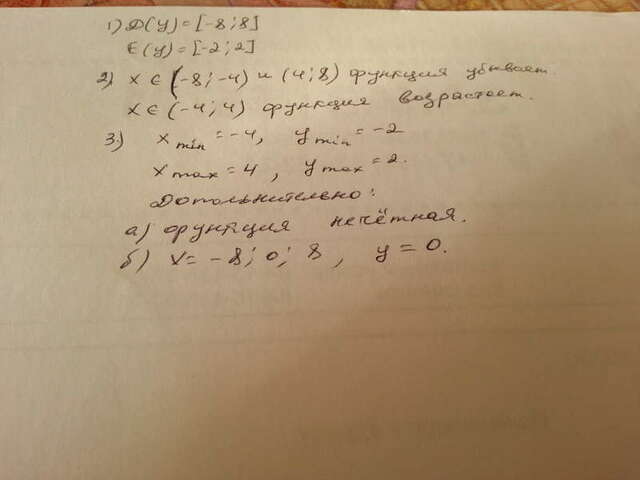 1) D(y) = [-8; 8]
E(y) = [-2; 2]
2) x ∈ (-8; -4) и (4; 8) функция убывает.
x ∈ (-4; 4) функция возрастает.
3.) x min = -4, y min = -2
x max = 4, y max = 2.
Дополнительно:
а) функция нечётная.
б) x = -8; 0; 8, y = 0.